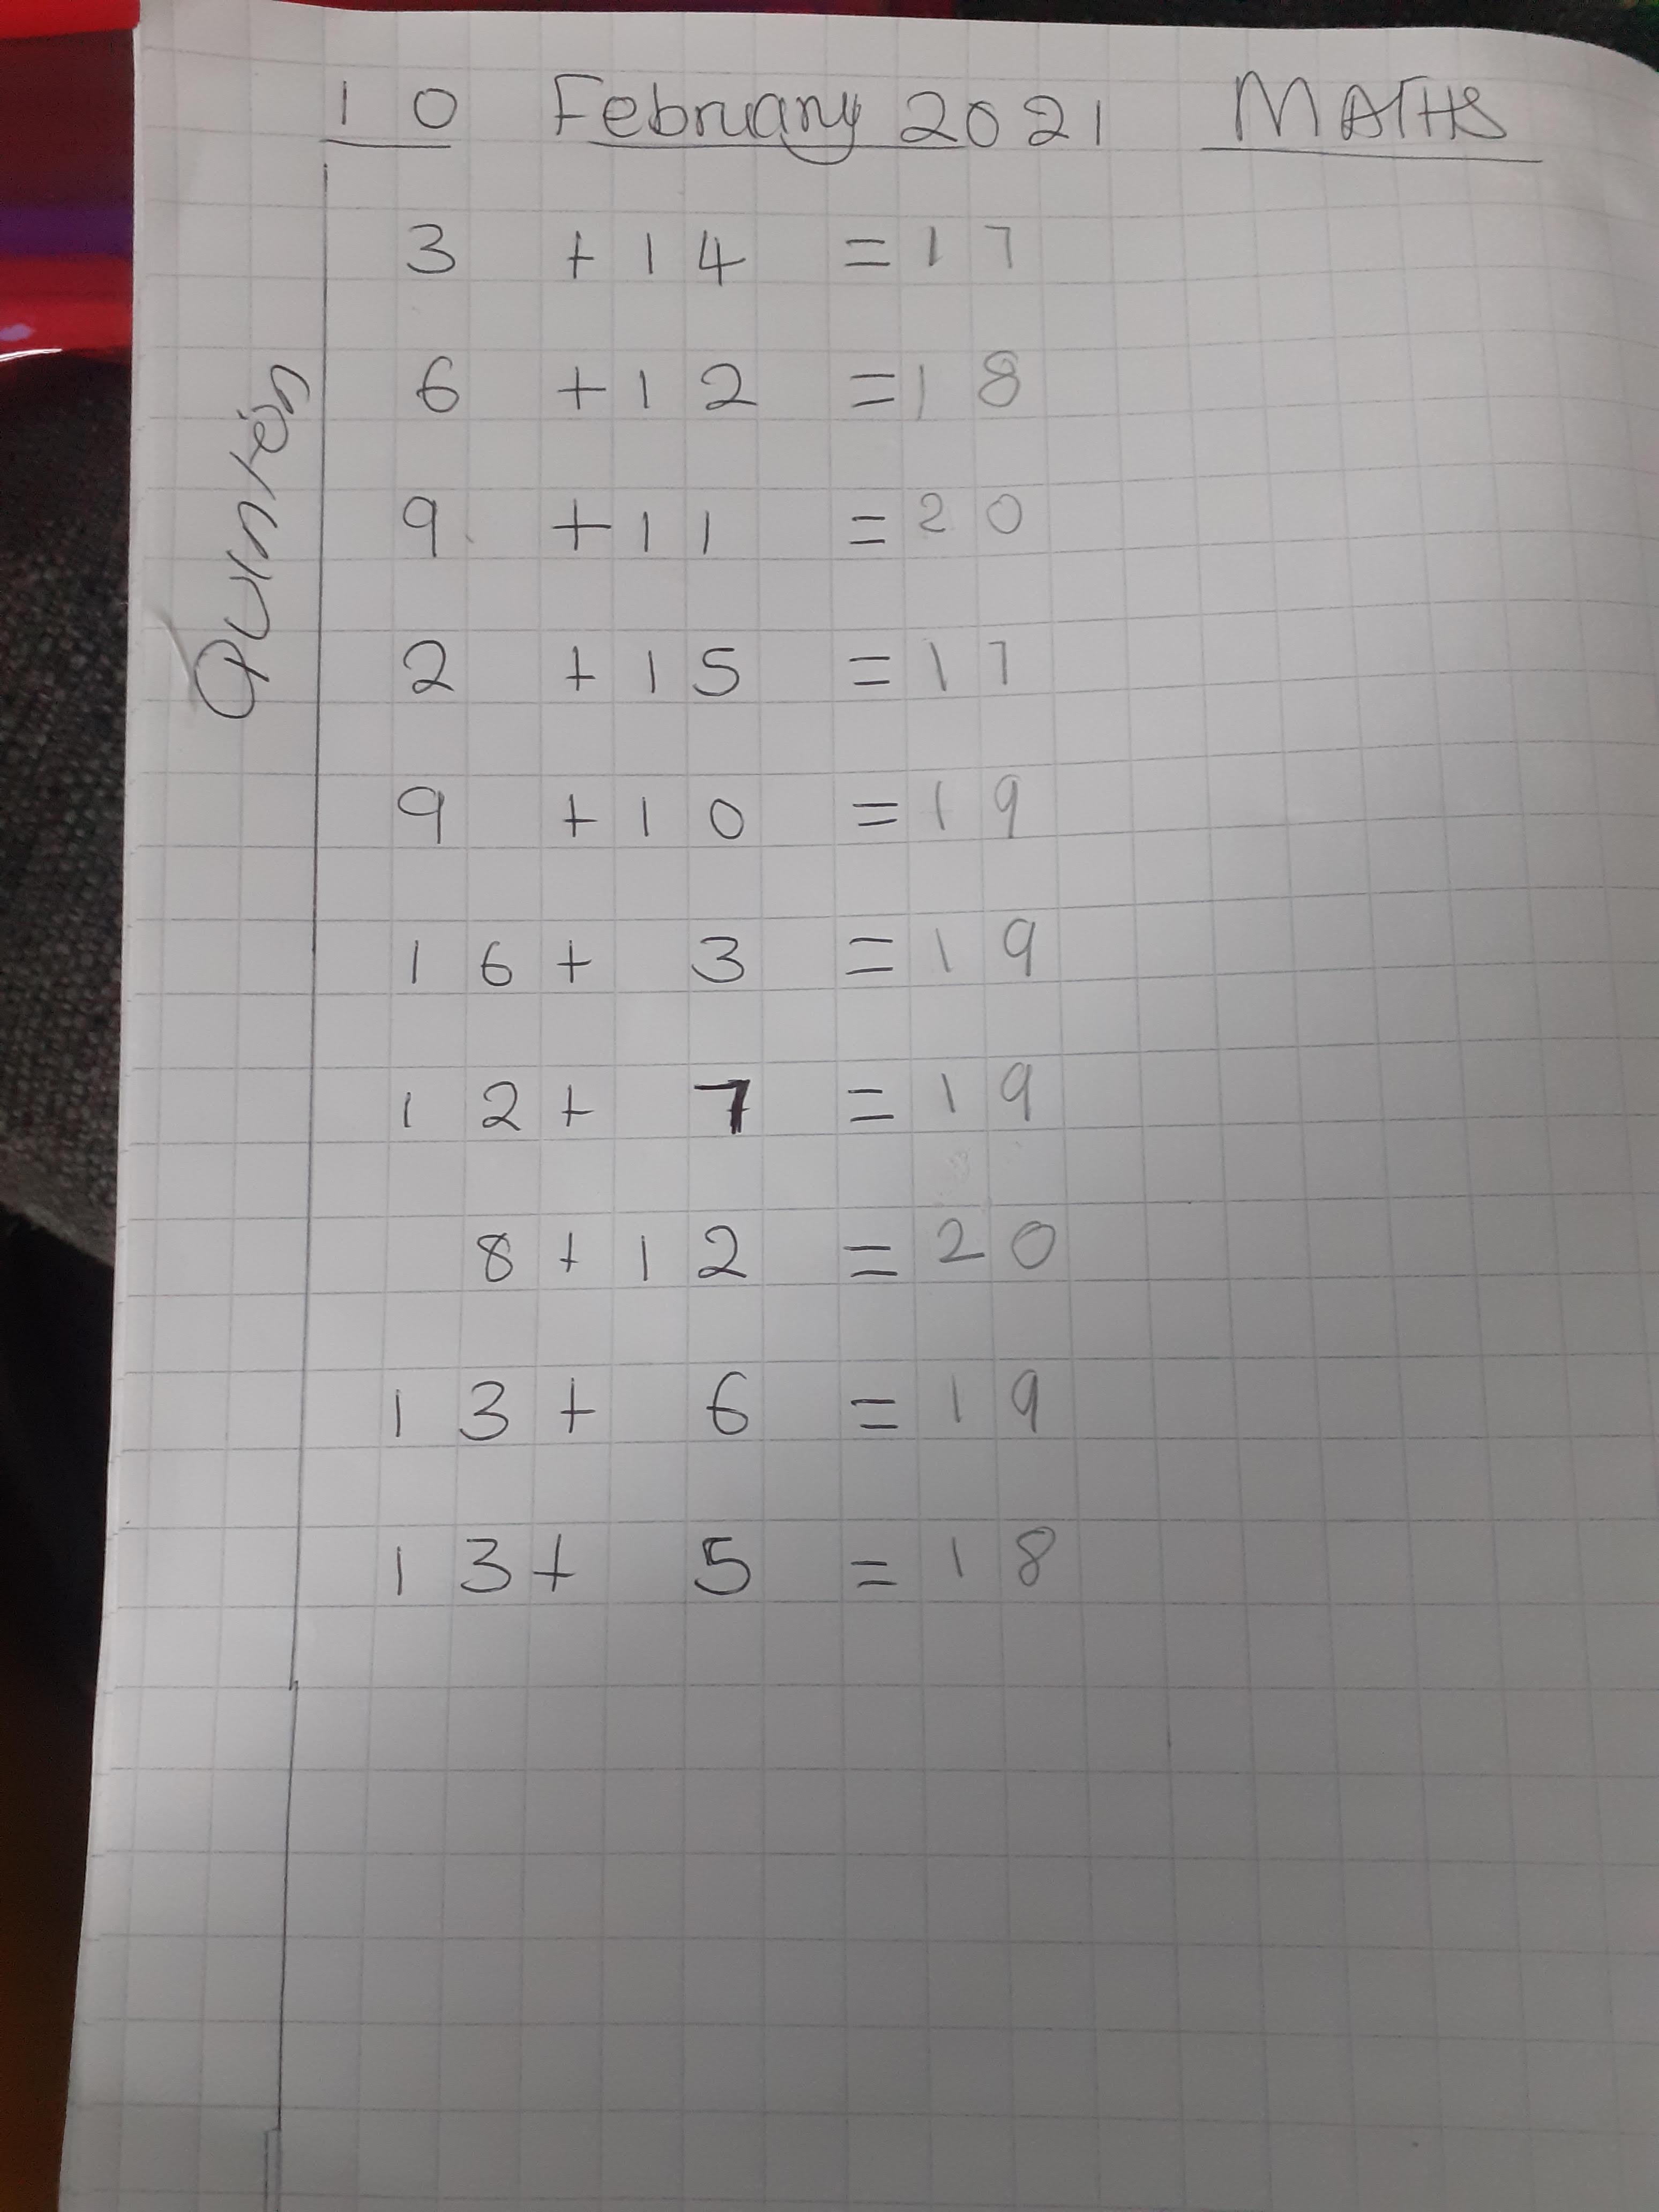 10 February 2021 MATHS
3 + 14 = 17
6 + 12 = 18
9 + 11 = 20
2 + 15 = 17
9 + 10 = 19
16 + 3 = 19
12 + 7 = 19
8 + 12 = 20
13 + 6 = 19
13 + 5 = 18